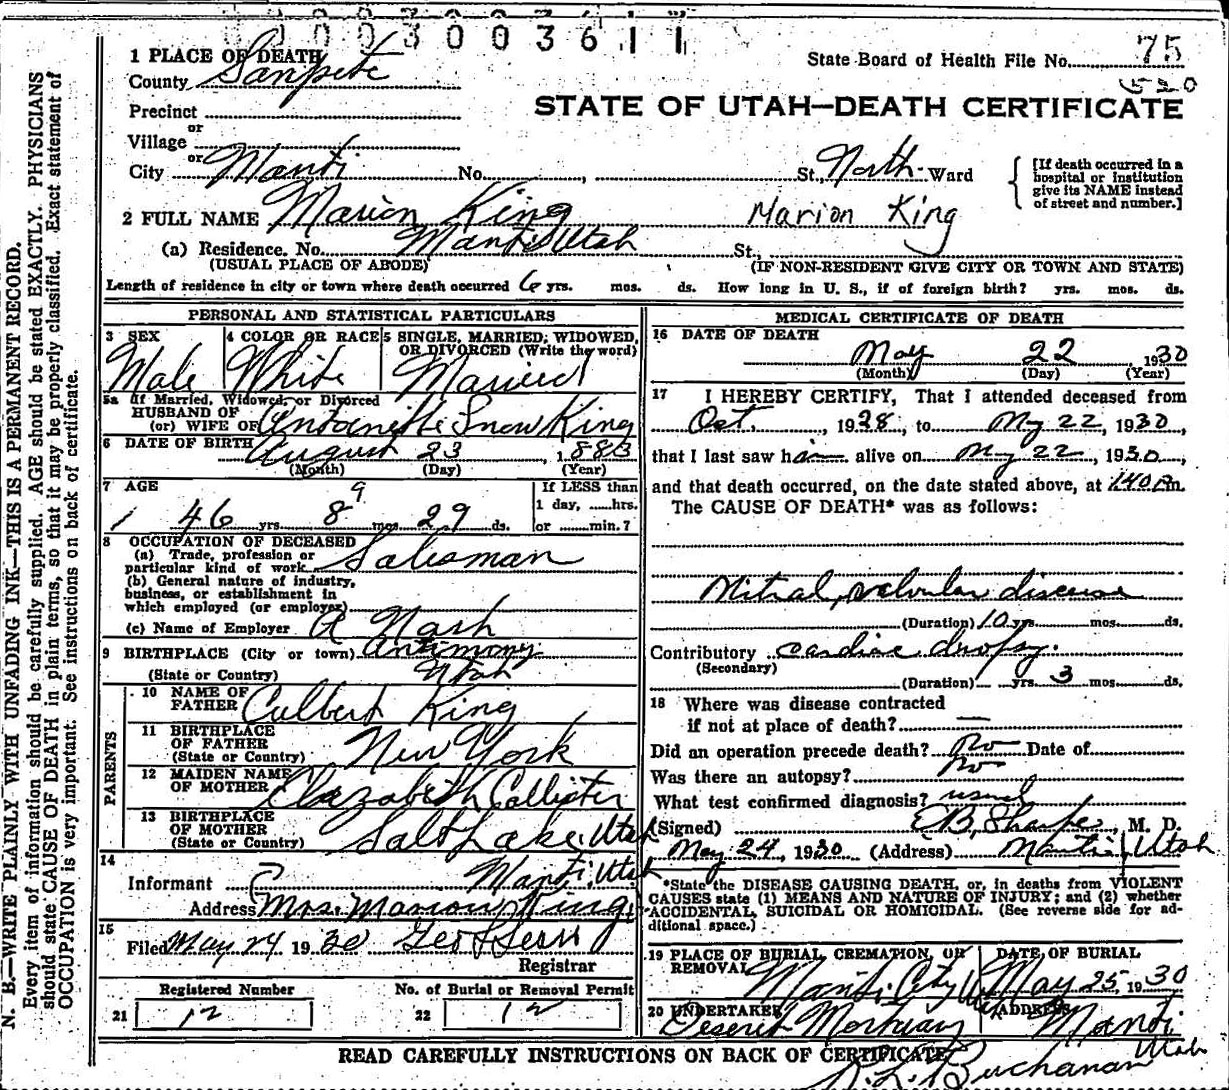 0003003611
1 PLACE OF DEATH
State Board of Health File No. 75
County Sanpete
520
Precinct
STATE OF UTAH—DEATH CERTIFICATE
or
Village
or
City Manti No. , St., North Ward
[If death occurred in a hospital or institution give its NAME instead of street and number.]
2 FULL NAME Marion King Marion King
(a) Residence. No. Manti Utah St.,
(USUAL PLACE OF ABODE) (IF NON-RESIDENT GIVE CITY OR TOWN AND STATE)
Length of residence in city or town where death occurred 6 yrs. mos. ds. How long in U. S., if of foreign birth? yrs. mos. ds.
PERSONAL AND STATISTICAL PARTICULARS
3 SEX 4 COLOR OR RACE 5 SINGLE, MARRIED, WIDOWED,
OR DIVORCED (Write the word)
Male White Married
5a If Married, Widowed, or Divorced
HUSBAND OF
(or) WIFE OF Antoinette Snow King
6 DATE OF BIRTH August 23, 1883
(Month) (Day) (Year)
7 AGE 9 If LESS than
1 day, ......hrs.
46 yrs. 8 mos. 29 ds. or ......min.?
8 OCCUPATION OF DECEASED
(a) Trade, profession or
particular kind of work Salesman
(b) General nature of industry,
business, or establishment in
which employed (or employer)
(c) Name of Employer A Nash
9 BIRTHPLACE (City or town) Antimony
(State or Country) Utah
PARENTS
10 NAME OF
FATHER Culbert King
11 BIRTHPLACE
OF FATHER
(State or Country) New York
12 MAIDEN NAME
OF MOTHER Elizabeth Callister
13 BIRTHPLACE
OF MOTHER
(State or Country) Salt Lake, Utah
14
Informant Manti, Utah
Address Mrs. Marion King
15
Filed May 24 1930
Registrar
Registered Number No. of Burial or Removal Permit
21 12 22 12
MEDICAL CERTIFICATE OF DEATH
16 DATE OF DEATH
May 22, 1930
(Month) (Day) (Year)
17 I HEREBY CERTIFY, That I attended deceased from
Oct. , 1928, to May 22, 1930,
that I last saw him alive on May 22, 1930,
and that death occurred, on the date stated above, at 140 P m.
The CAUSE OF DEATH* was as follows:
Mitral valvular disease
(Duration) 10 yrs. mos. ds.
Contributory cardiac dropsy.
(Secondary)
(Duration) — yrs. 3 mos. ds.
18 Where was disease contracted
if not at place of death? —
Did an operation precede death? No Date of
Was there an autopsy? No
What test confirmed diagnosis? usual
(Signed) , M. D.
May 24, 1930 (Address) Manti, Utah
*State the DISEASE CAUSING DEATH, or, in deaths from VIOLENT
CAUSES state (1) MEANS AND NATURE OF INJURY; and (2) whether
ACCIDENTAL, SUICIDAL OR HOMICIDAL. (See reverse side for ad-
ditional space.)
19 PLACE OF BURIAL, CREMATION, OR DATE OF BURIAL
REMOVAL Manti City May 25, 1930
20 UNDERTAKER ADDRESS
Deseret Mortuary Manti
Utah
READ CAREFULLY INSTRUCTIONS ON BACK OF CERTIFICATE
Buchanan
N. B.—WRITE PLAINLY WITH UNFADING INK—THIS IS A PERMANENT RECORD.
Every item of information should be carefully supplied. AGE should be stated EXACTLY. PHYSICIANS
should state CAUSE OF DEATH in plain terms, so that it may be properly classified. Exact statement of
OCCUPATION is very important. See instructions on back of certificate.